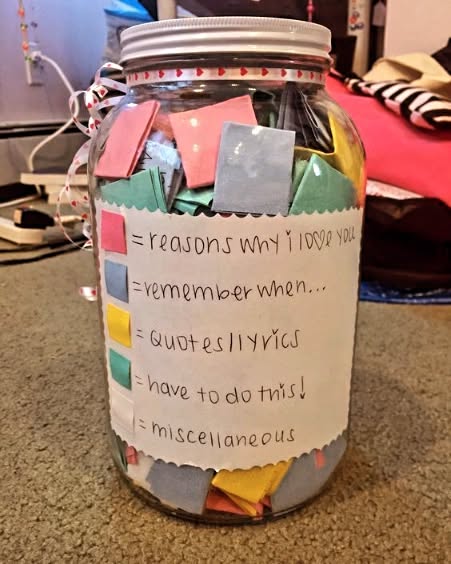 = reasons why i love you
= remember when...
= quotes/lyrics
= have to do this!
= miscellaneous